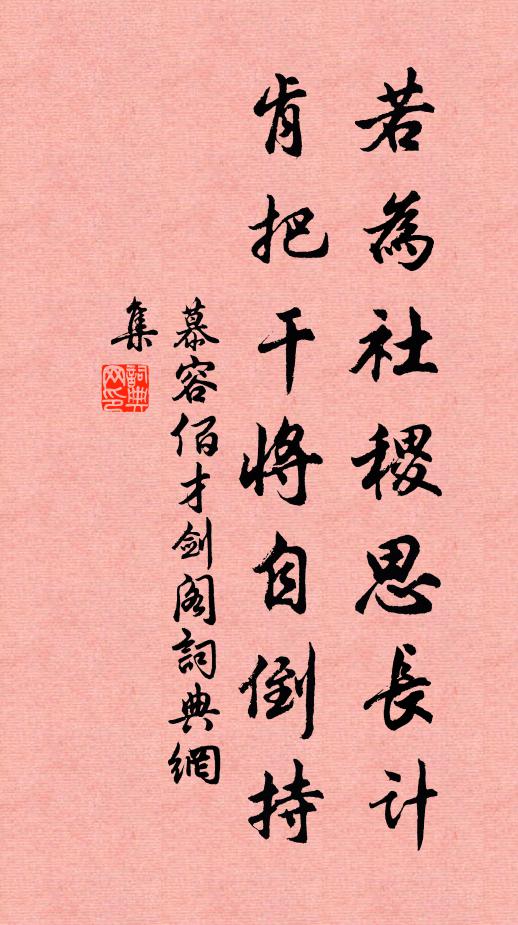 若為社稷思長計
肯把干將自倒持
慕容佰才劍閣詞典網
集
詞典
网印